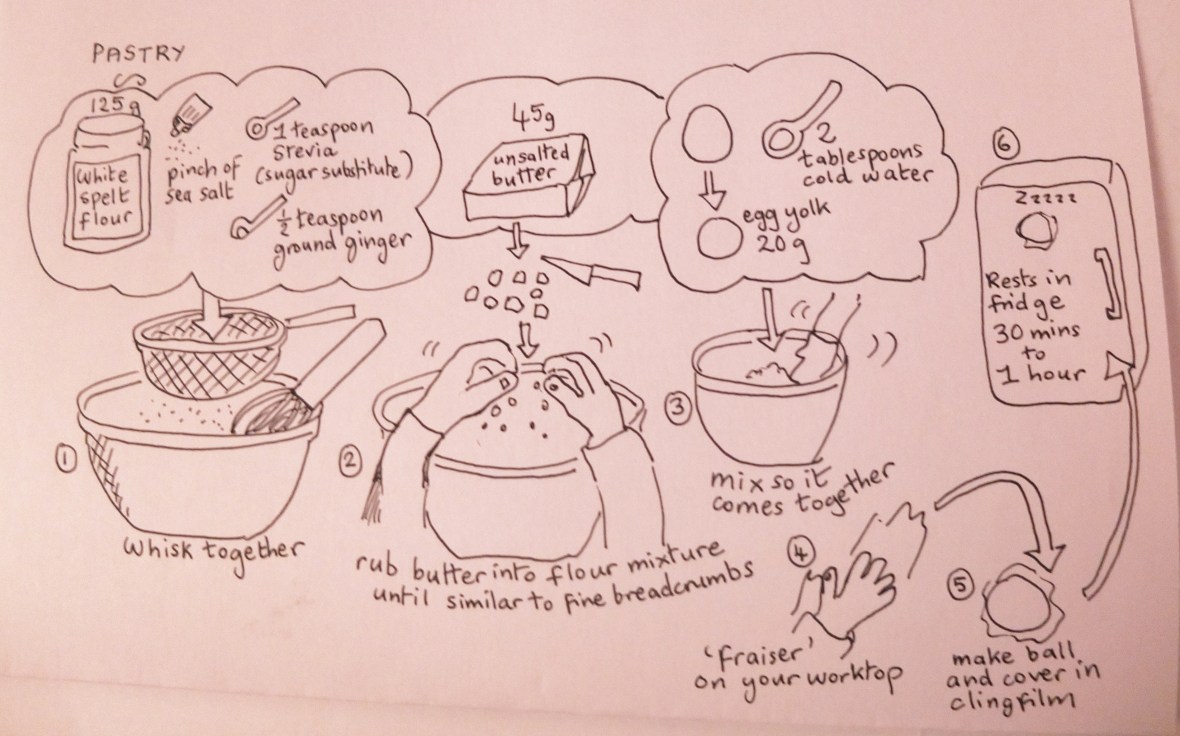 PASTRY
125g
White
spelt
flour
pinch of
sea salt
1 teaspoon
stevia
(sugar substitute)
½ teaspoon
ground ginger
1
whisk together
45g
unsalted
butter
2
rub butter into flour mixture
until similar to fine breadcrumbs
2
tablespoons
cold water
egg yolk
20g
3
mix so it
comes together
4
'fraiser'
on your worktop
5
make ball
and cover in
clingfilm
6
Zzzzz
Rests in
fridge
30 mins
to
1 hour